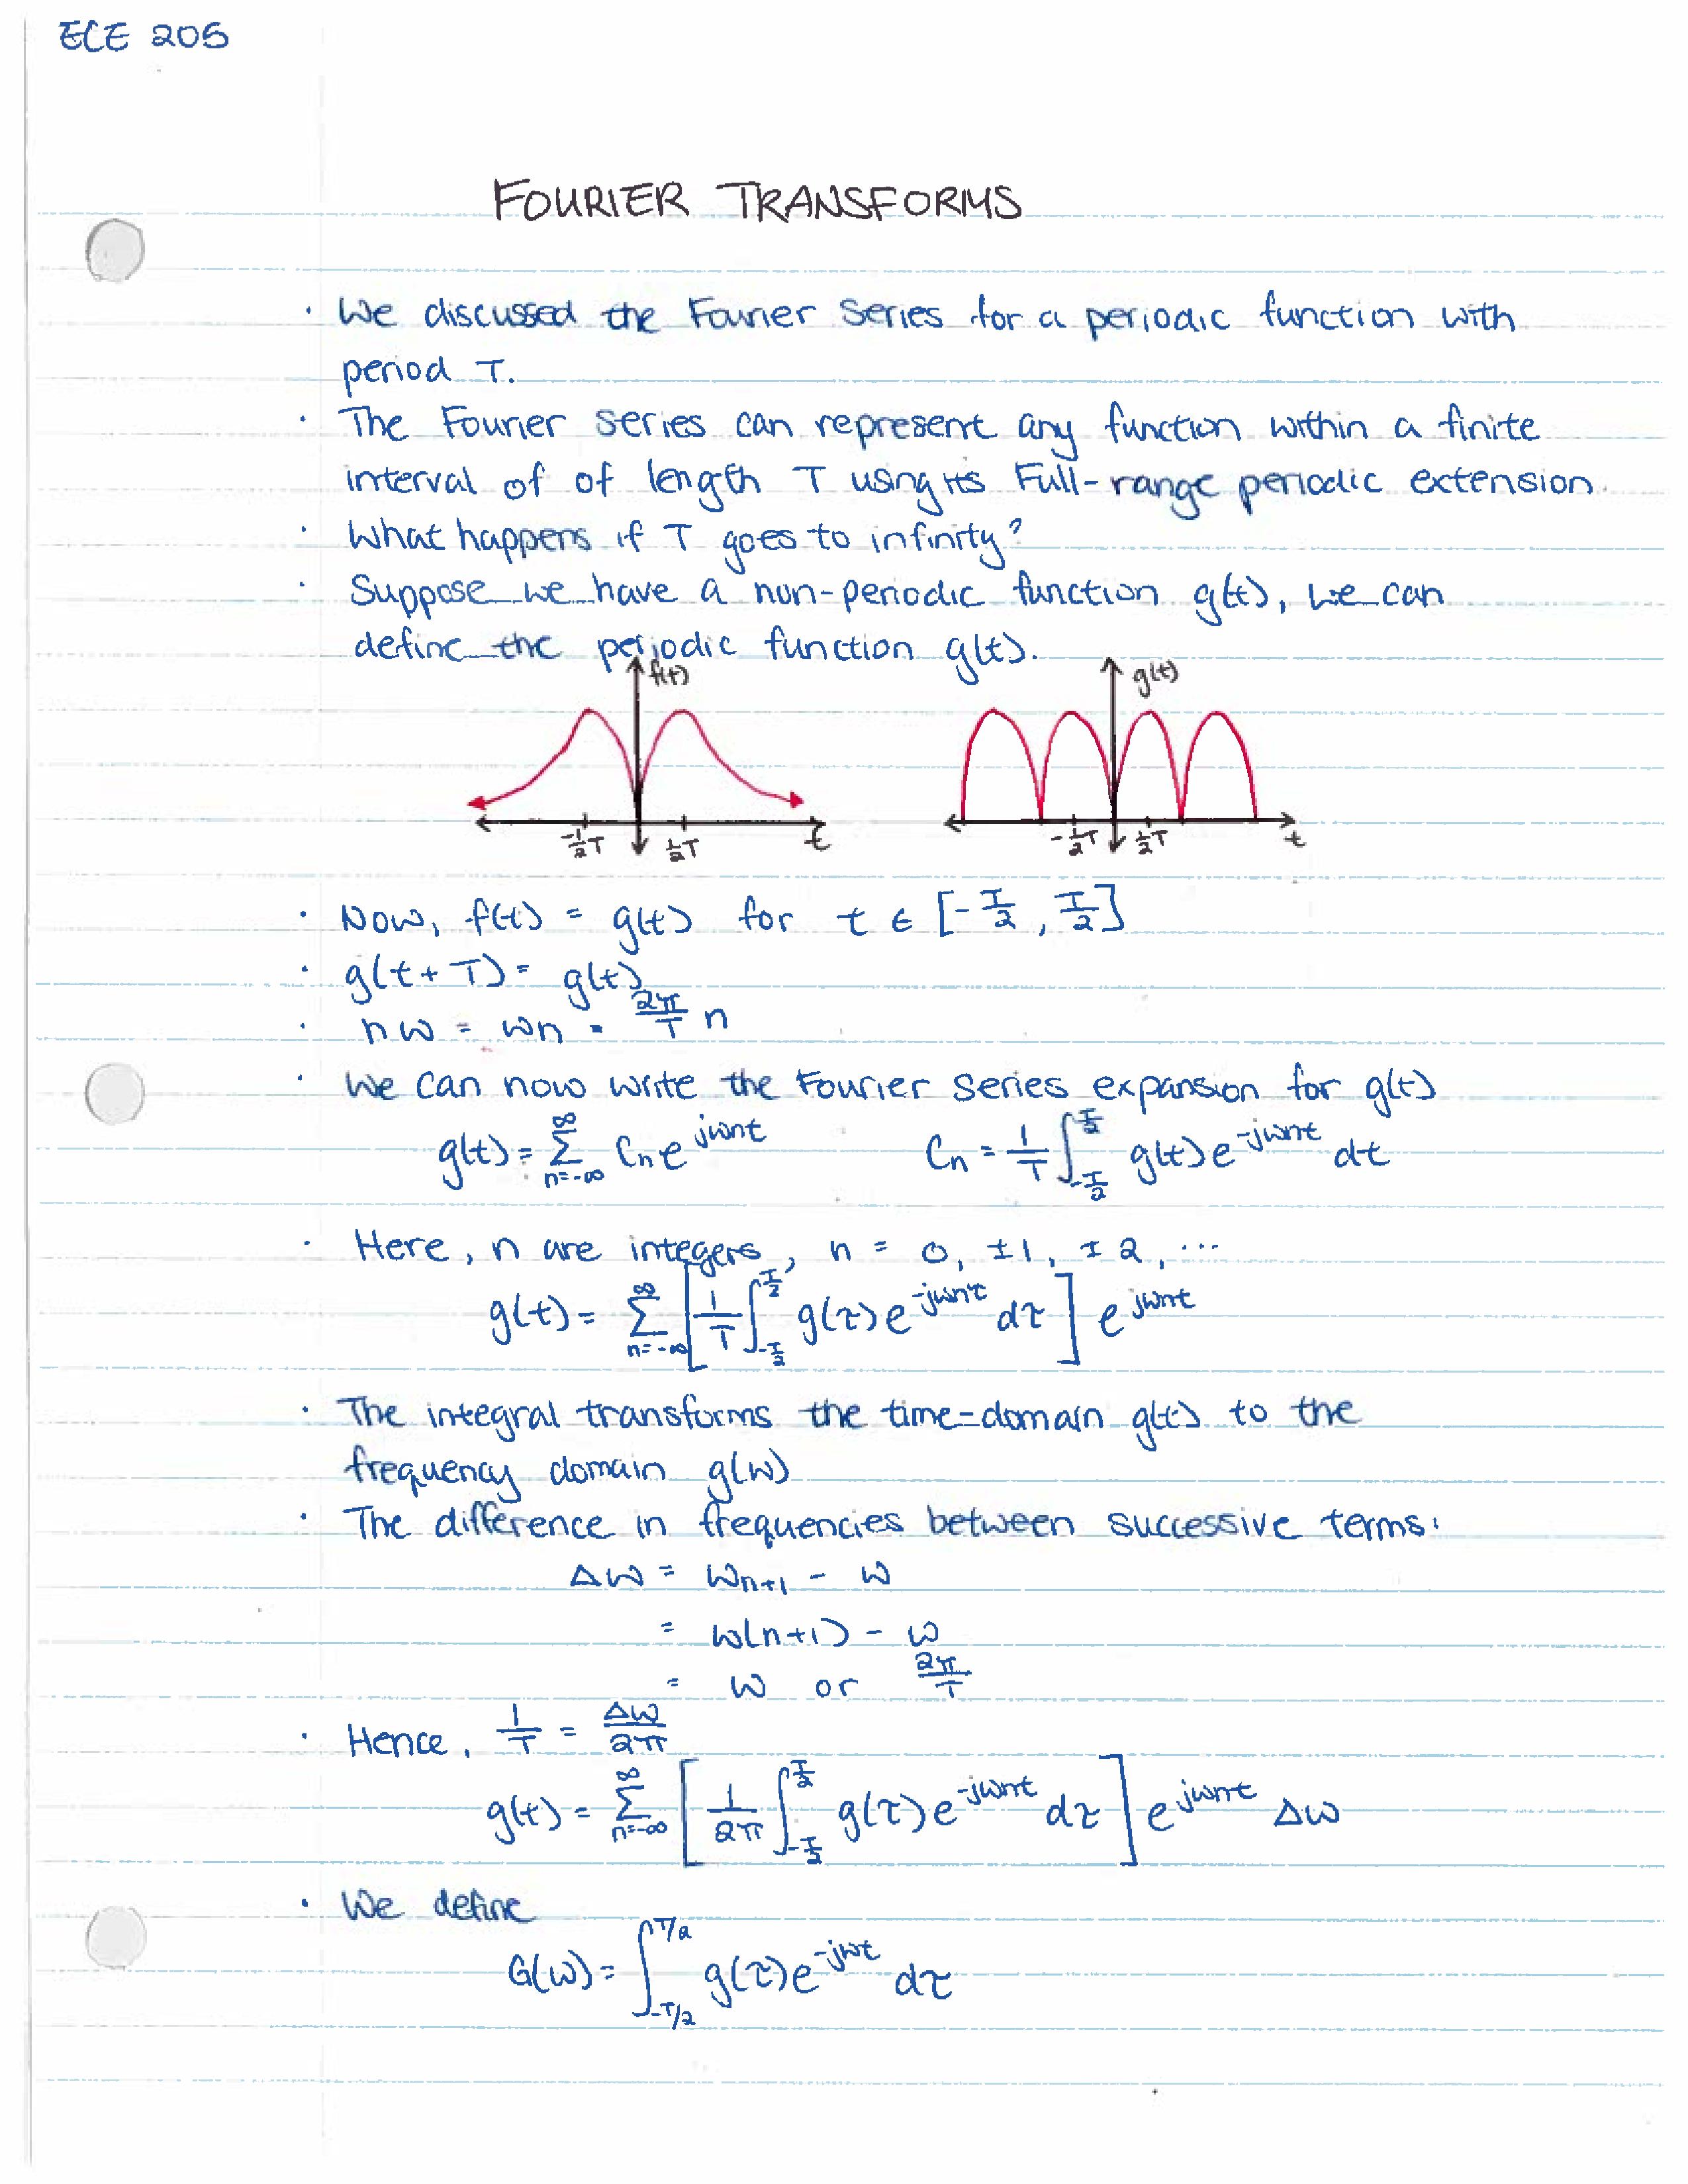 ECE 205
FOURIER TRANSFORMS
· We discussed the Fourier Series for a periodic function with
period T.
· The Fourier series can represent any function within a finite
interval of of length T using its Full-range periodic extension.
· What happens if T goes to infinity?
· Suppose we have a non-periodic function g(t), we can
define the periodic function g(t).
f(t) g(t)
-1/2T 1/2T t -1/2T 1/2T t
· Now, f(t) = g(t) for t ∈ [-T/2, T/2]
· g(t+T) = g(t)
· nω = ωn = 2π/T n
· We can now write the Fourier series expansion for g(t)
g(t) = ∑_{n=-∞}^{∞} Cn e^{jωnt} Cn = 1/T ∫_{-T/2}^{T/2} g(t)e^{-jωnt} dt
· Here, n are integers, n = 0, ±1, ±2, ...
g(t) = ∑_{n=-∞}^{∞} [1/T ∫_{-T/2}^{T/2} g(τ)e^{-jωnτ} dτ] e^{jωnt}
· The integral transforms the time-domain g(t) to the
frequency domain g(ω)
· The difference in frequencies between successive terms:
Δω = ωn+1 - ω
= ω(n+1) - ω
= ω or 2π/T
· Hence, 1/T = Δω/2π
g(t) = ∑_{n=-∞}^{∞} [1/2π ∫_{-T/2}^{T/2} g(τ)e^{-jωnt} dτ] e^{jωnt} Δω
· We define
G(ω) = ∫_{-T/2}^{T/2} g(τ)e^{-jωt} dτ